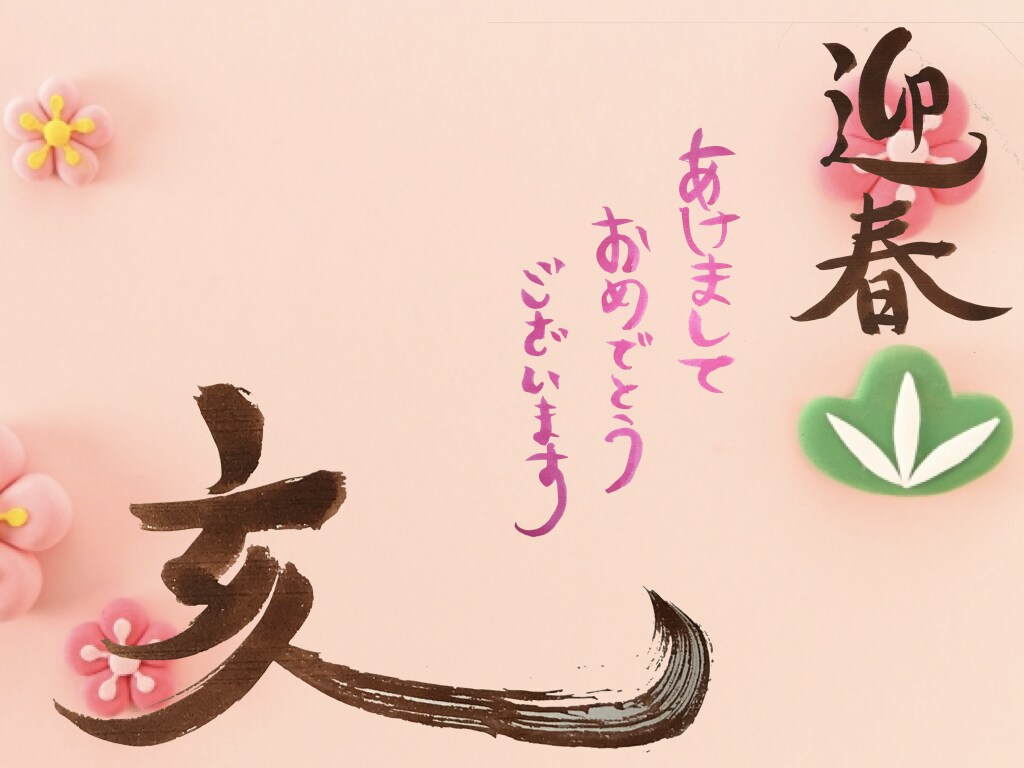 迎春
あけまして
おめでとう
ございます
亥